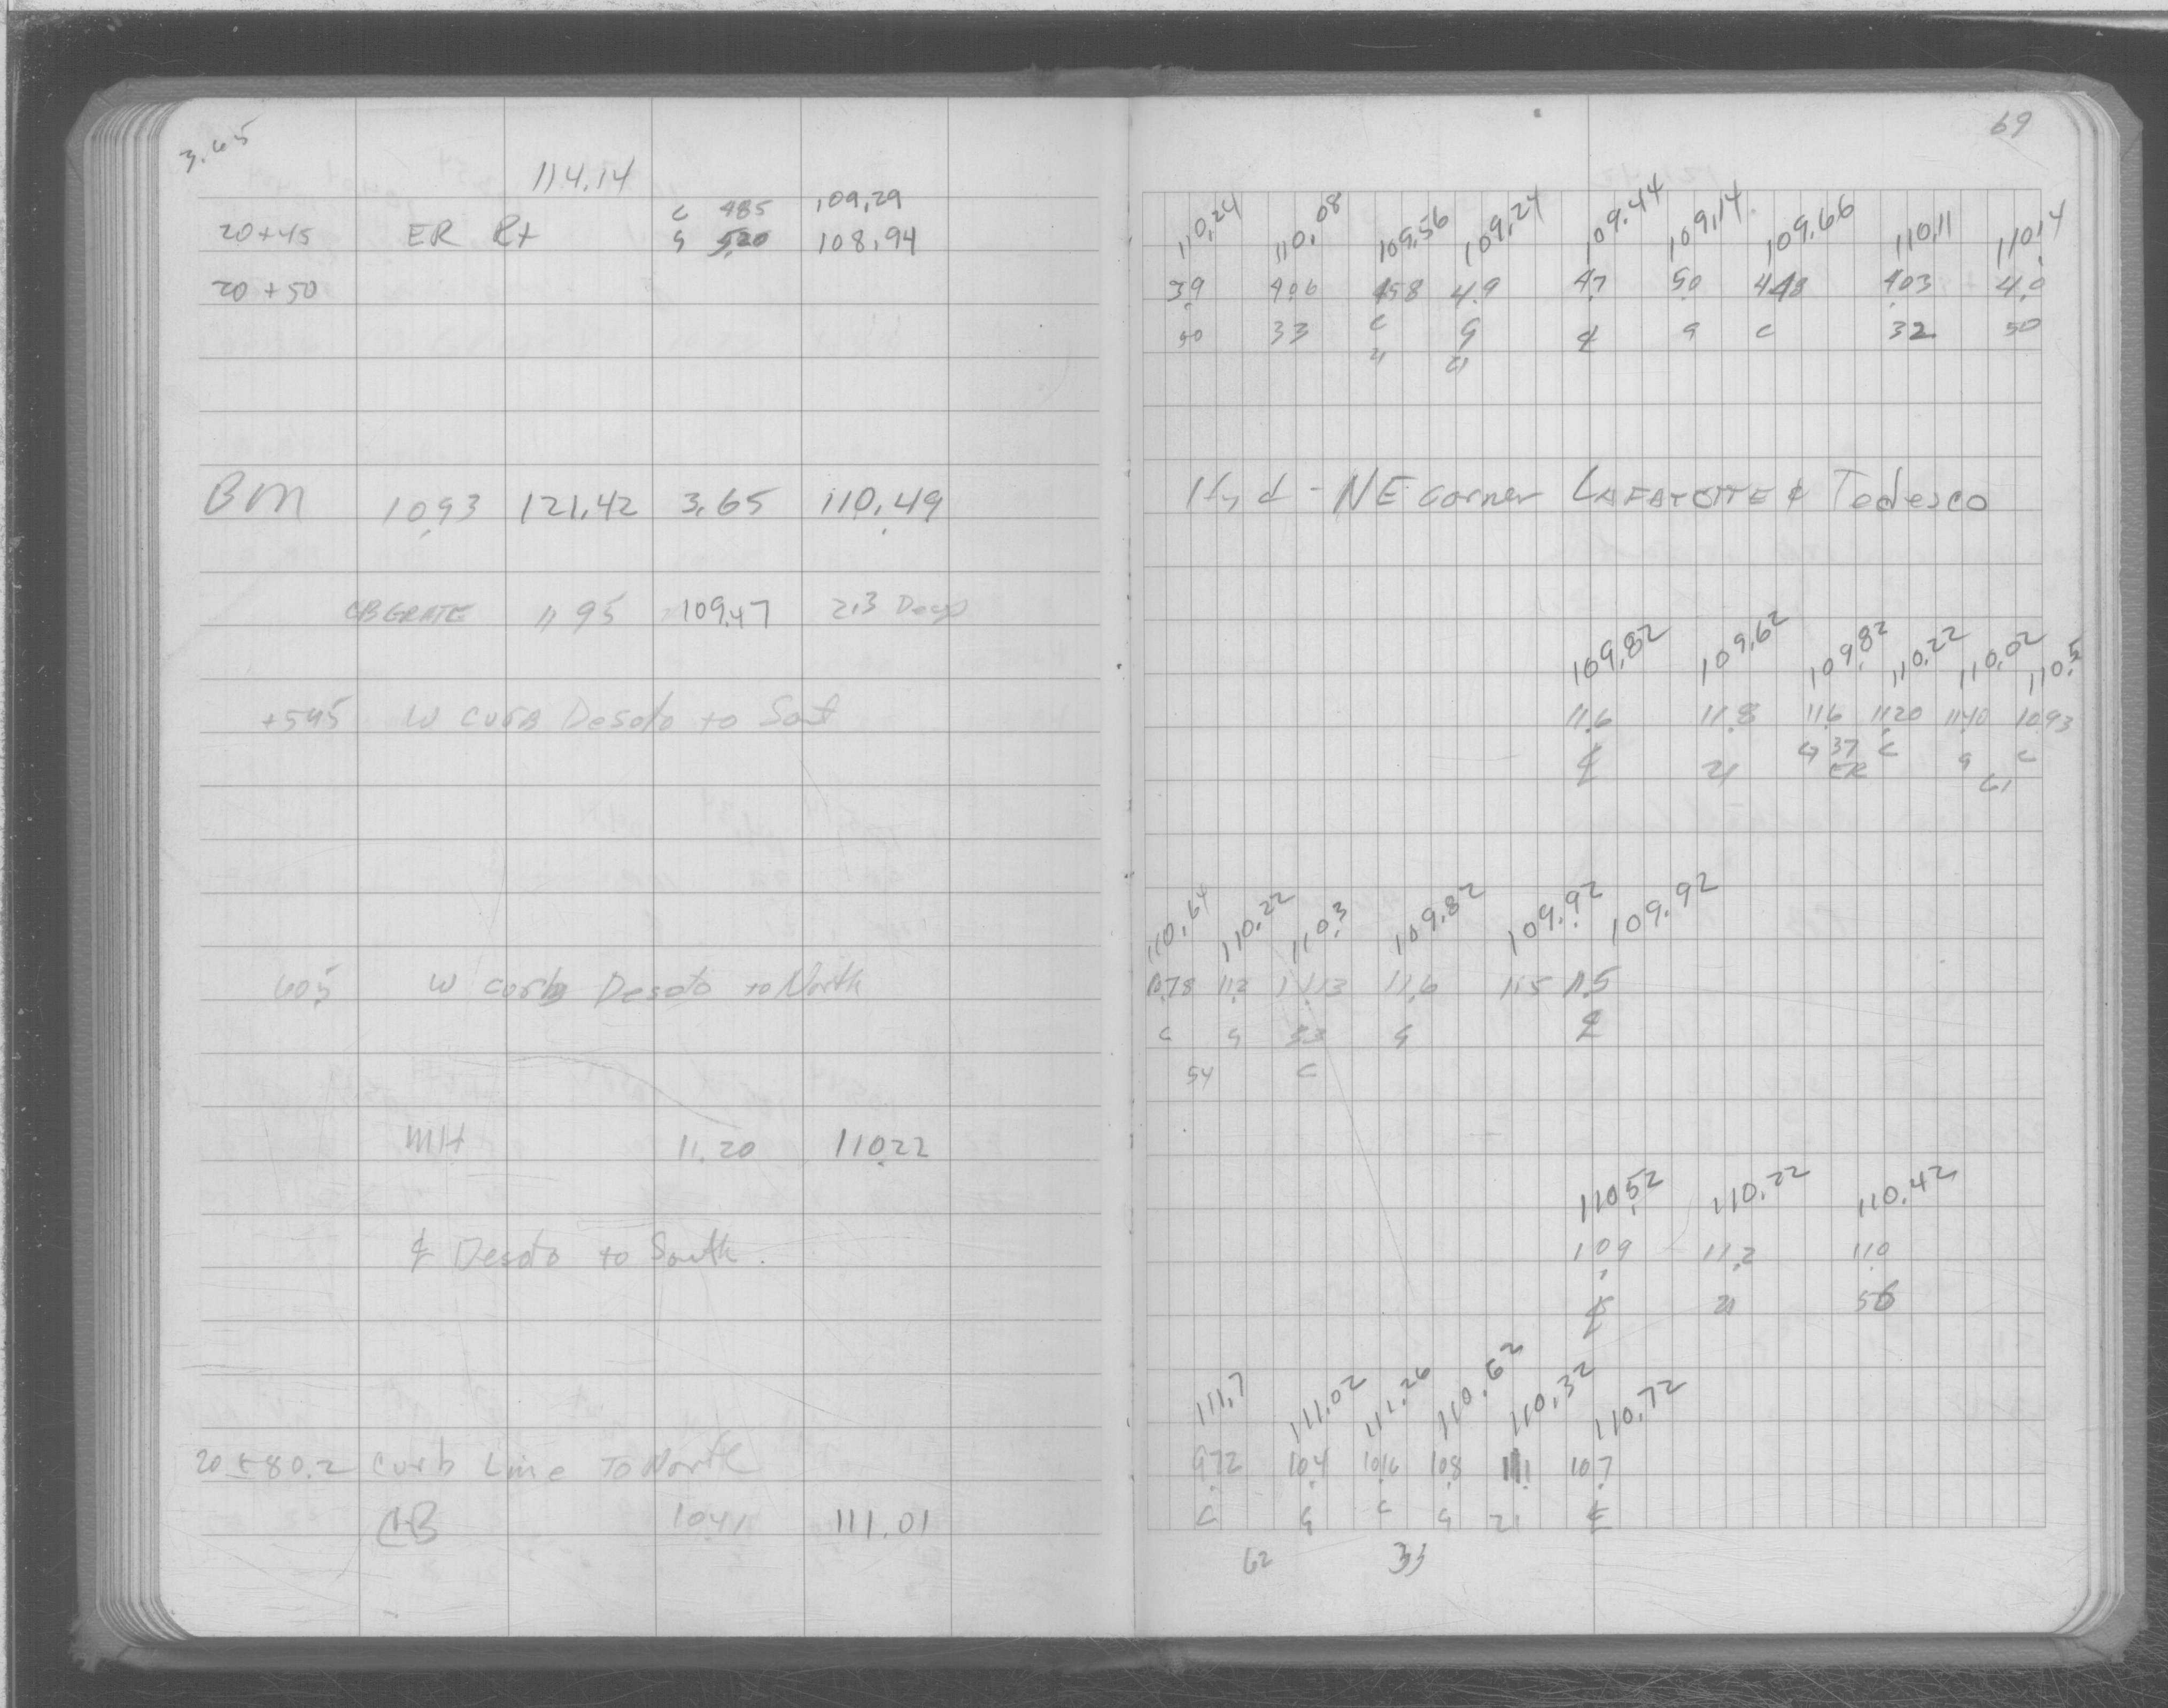 3.65
114.14
C 485 109.29
20+45 ER Rt G 5.20 108.94
20+50
BM 10.93 121.42 3.65 110.49
CB GRATE 11 95 109.47 2.3 Deep
+545 W curb Desoto to Sout
605 W curb Desoto to North
MH 11.20 110.22
℄ Desoto to South.
20+80.2 Curb Line To North
CB 10.41 111.01
69
110.24 110.08 109.56 109.24 109.44 109.14 109.66 110.11 110.14
3.9 4.06 458 4.9 4.7 5.0 448 4.03 4.0
50 33 C G ℄ G C 32 50
21 21
Hyd - NE corner LAFAYETTE & Tedesco
109.82 109.62 109.82 110.22 110.02 110.5
11.6 11.8 11.6 11.20 11.40 10.93
℄ 21 G 37 C G C
ER 61
110.64 110.22 110.3 109.82 109.92 109.92
10.78 11.2 11.13 11.6 11.5 11.5
C G 33 G ℄
54 C
110.52 110.22 110.42
10.9 11.2 11.0
℄ 21 56
111.7 111.02 111.26 110.62 110.32 110.72
9.72 10.4 10.16 10.8 11.1 10.7
C G C G 21 ℄
62 33